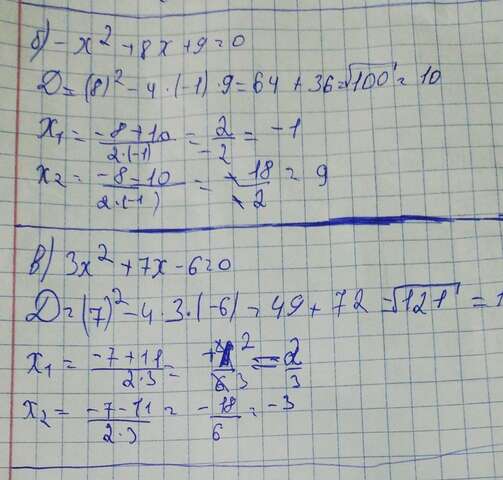 б) -x² + 8x + 9 = 0
D = (8)² - 4 · (-1) · 9 = 64 + 36 = √100 = 10
x₁ = (-8+10)/(2·(-1)) = 2/-2 = -1
x₂ = (-8-10)/(2·(-1)) = -18/-2 = 9
в) 3x² + 7x - 6 = 0
D = (7)² - 4 · 3 · (-6) = 49 + 72 = √121 = 1
x₁ = (-7+11)/(2·3) = +4 2/6 3 = 2/3
x₂ = (-7-11)/(2·3) = -18/6 = -3